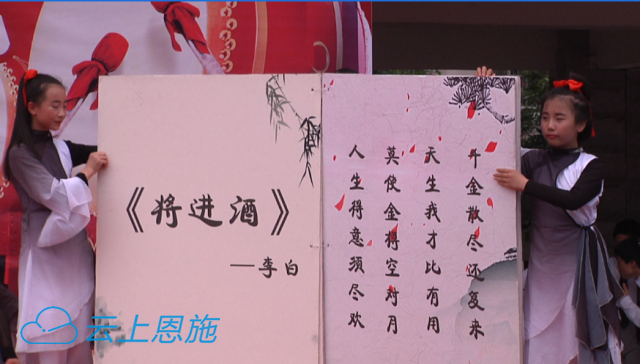 《将进酒》
—李白
人生得意须尽欢
莫使金樽空对月
天生我才比有用
千金散尽还复来
云上恩施